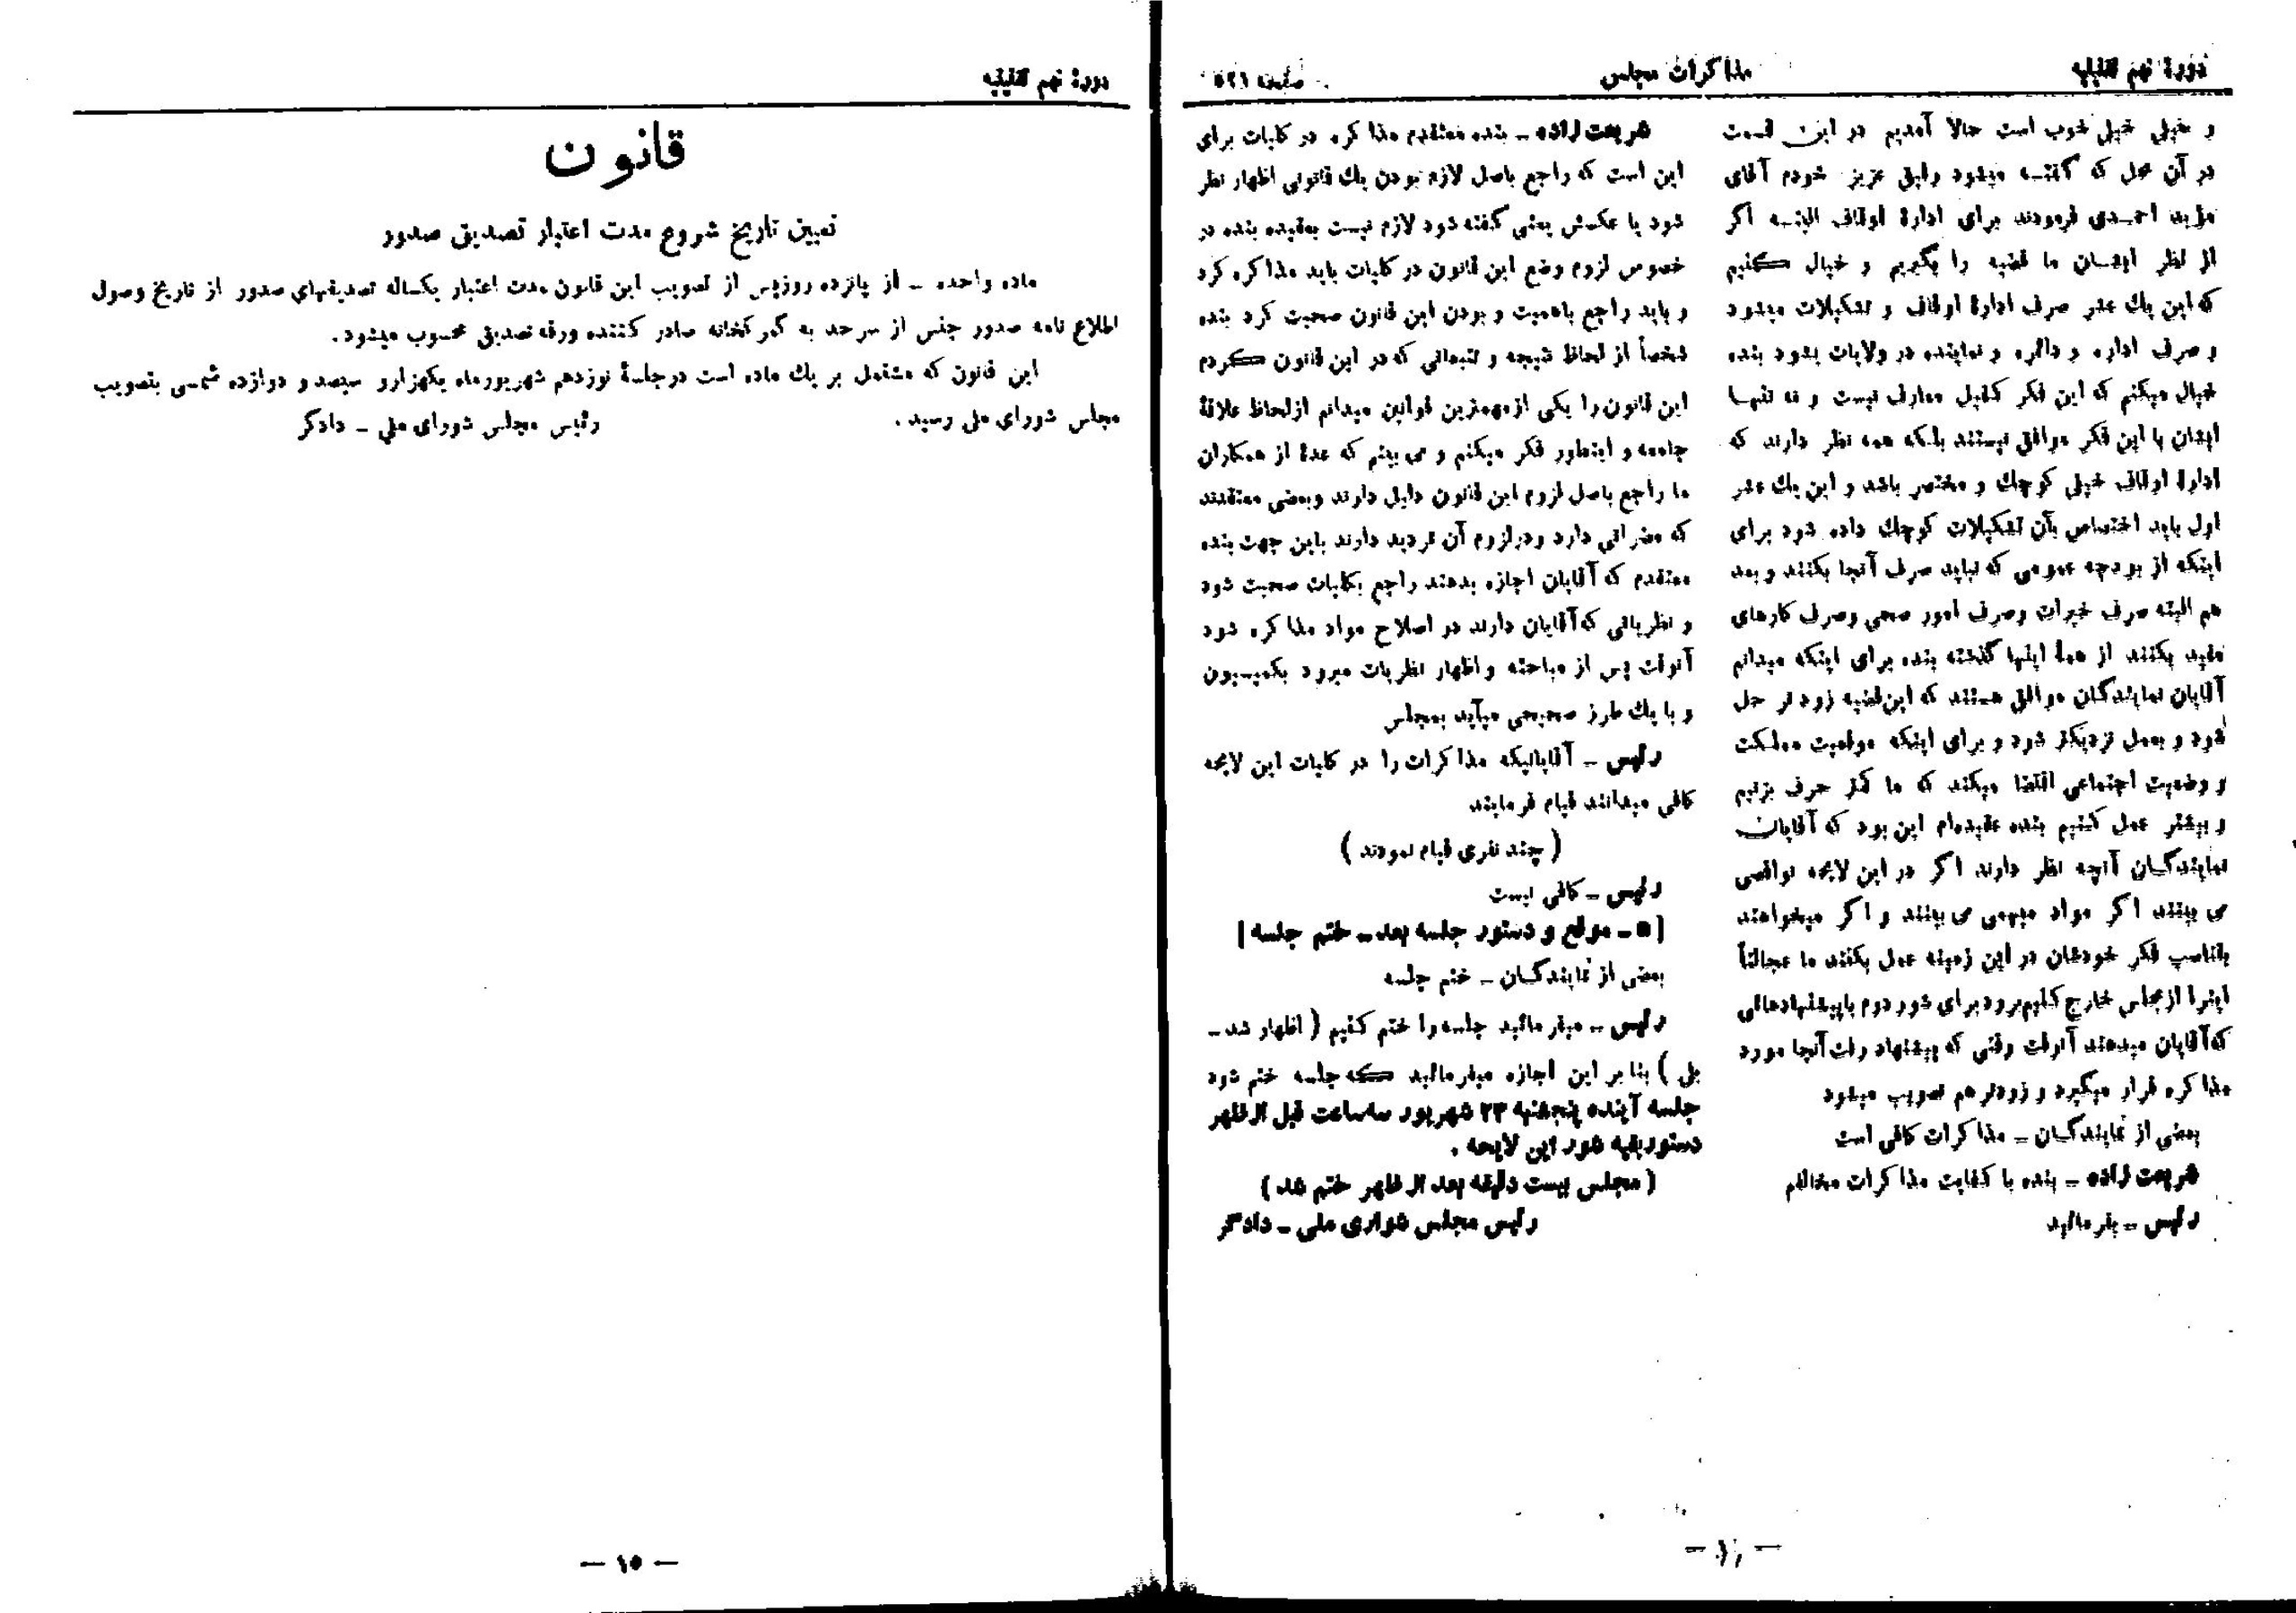 دورهٔ نهم تقنینیه
مذاکرات مجلس
صفحه ۵۲۱
و خیلی خیلی خوب است حالا آمدیم در این قسمت
در آن محل که گفته میشود رفیق عزیز خودم آقای
مؤید احمدی فرمودند برای ادارهٔ اوقاف البته اگر
از نظر ایشان ما قضیه را بگیریم و خیال کنیم
که این یك عشر صرف ادارهٔ اوقاف و تشکیلات میشود
و صرف اداره و دائره و نماینده در ولایات بشود بنده
خیال میکنم که این فکر کفیل معارف نیست و نه تنها
ایشان با این فکر موافق نیستند بلکه همه نظر دارند که
ادارهٔ اوقاف خیلی کوچك و مختصر باشد و این یك عشر
اول باید اختصاص بآن تشکیلات کوچك داده شود برای
اینکه از بودجه عمومی که نباید صرف آنجا بکنند و بعد
هم البته صرف خیرات وصرف امور صحی وصرف کارهای
مفید بکنند از همهٔ اینها گذشته بنده برای اینکه میدانم
آقایان نمایندگان موافق هستند که این قضیه زودتر حل
شود و بعمل نزدیکتر شود و برای اینکه موقعیت مملکت
و وضعیت اجتماعی اقتضا میکند که ما کمتر حرف بزنیم
و بیشتر عمل کنیم بنده عقیده‌ام این بود که آقایان
نمایندگان آنچه نظر دارند اگر در این لایحه نواقصی
می بینند اگر مواد مبهمی می بینند و اگر میخواهند
بتناسب فکر خودشان در این زمینه عمل بکنند ما عجالتاً
اینرا از مجلس خارج کنیم برود برای شور دوم با پیشنهادهائی
که آقایان میدهند آنوقت وقتی که پیشنهاد رفت آنجا مورد
مذاکره قرار میگیرد و زودتر هم تصویب میشود
بعضی از نمایندگان ـ مذاکرات کافی است
شریعت زاده ـ بنده با کفایت مذاکرات مخالفم
رئیس ـ بفرمائید
شریعت زاده ـ بنده معتقدم مذاکره در کلیات برای
این است که راجع باصل لازم بودن یك قانونی اظهار نظر
شود یا عکسش یعنی گفته شود لازم نیست بعقیده بنده در
خصوص لزوم وضع این قانون در کلیات باید مذاکره کرد
و باید راجع باهمیت و بودن این قانون صحبت کرد بنده
شخصاً از لحاظ نتیجه و تتبعاتی که در این قانون کردم
این قانون را یکی از مهمترین قوانین میدانم از لحاظ علاقهٔ
جامعه و اینطور فکر میکنم و می بینم که عدهٔ از همکاران
ما راجع باصل لزوم این قانون دلیل دارند و بعضی معتقدند
که مضراتی دارد و در لزوم آن تردید دارند باین جهت بنده
معتقدم که آقایان اجازه بدهند راجع بکلیات صحبت شود
و نظریاتی که آقایان دارند در اصلاح مواد مذاکره شود
آنوقت پس از مباحثه و اظهار نظریات میرود بکمیسیون
و با یك طرز صحیحی میآید بمجلس
رئیس ـ آقایانیکه مذاکرات را در کلیات این لایحه
کافی میدانند قیام فرمایند
( چند نفری قیام نمودند )
رئیس ـ کافی نیست
[ ۵ ـ موقع و دستور جلسه بعد ـ ختم جلسه ]
بعضی از نمایندگان ـ ختم جلسه
رئیس ـ میفرمائید جلسه را ختم کنیم ( اظهار شد ـ
بلی ) بنا بر این اجازه میفرمائید که جلسه ختم شود
جلسه آینده پنجشنبه ۲۳ شهریور سه ساعت قبل از ظهر
دستور بقیه شور این لایحه .
( مجلس بیست دقیقه بعد از ظهر ختم شد )
رئیس مجلس شورای ملی ـ دادگر
دورهٔ نهم تقنینیه
قانون
تعیین تاریخ شروع مدت اعتبار تصدیق صدور
ماده واحده ـ از پانزده روز پس از تصویب این قانون مدت اعتبار یکساله تصدیقهای صدور از تاریخ وصول
اطلاع نامه صدور جنس از سرحد به گمرکخانه صادر کننده ورقه تصدیق محسوب میشود .
این قانون که مشتمل بر یك ماده است در جلسهٔ نوزدهم شهریور ماه یکهزار و سیصد و دوازده شمسی بتصویب
مجلس شورای ملی رسید .
رئیس مجلس شورای ملی ـ دادگر
— ۱۵ —